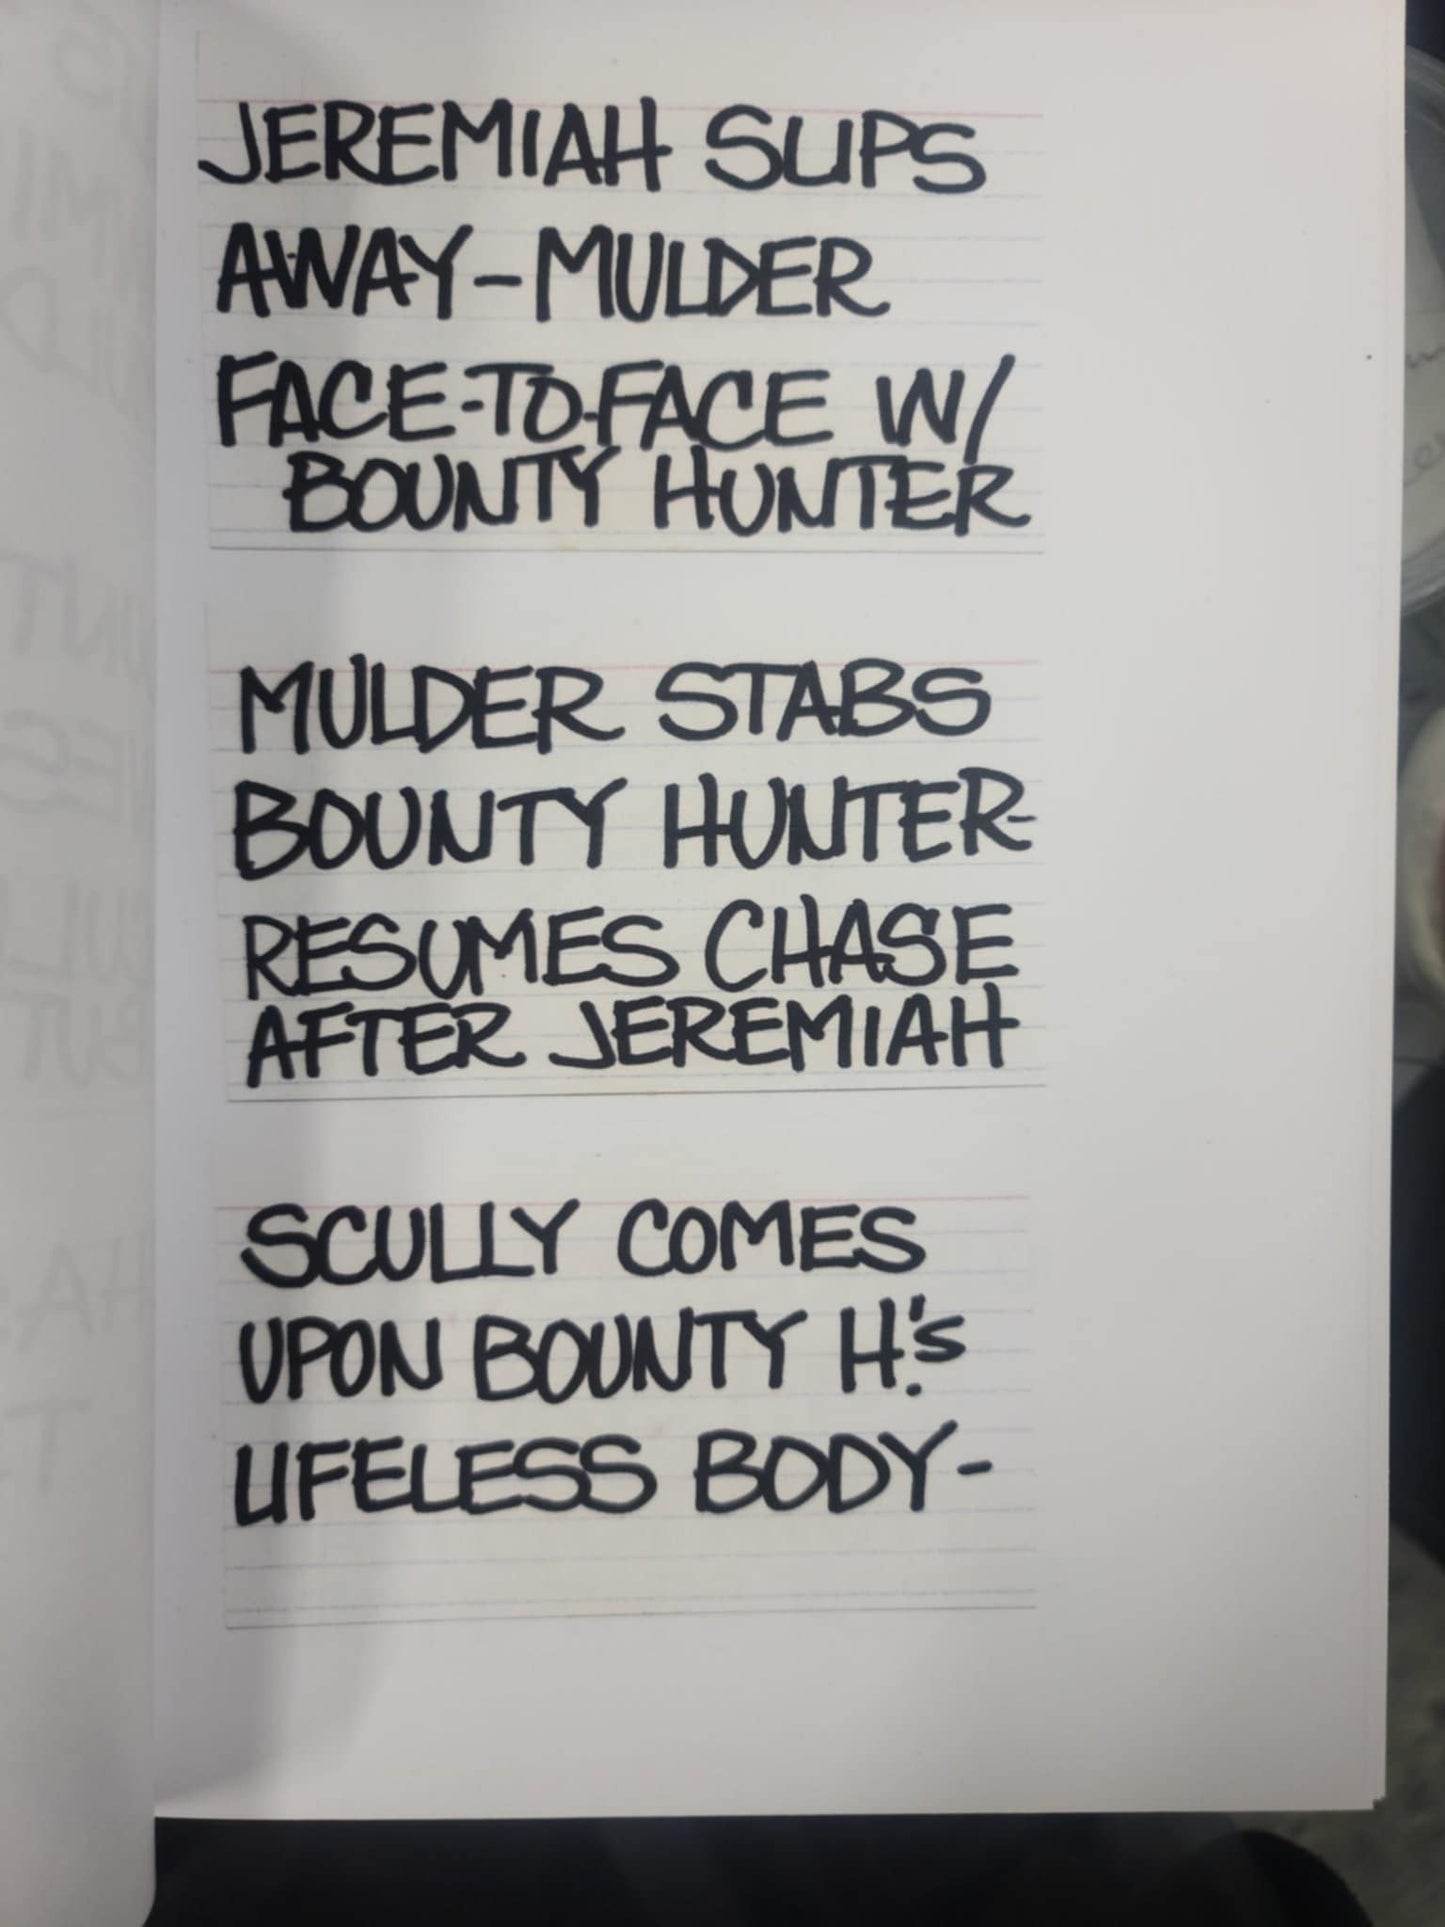 JEREMIAH SLIPS
AWAY-MULDER
FACE-TO-FACE W/
BOUNTY HUNTER
MULDER STABS
BOUNTY HUNTER-
RESUMES CHASE
AFTER JEREMIAH
SCULLY COMES
UPON BOUNTY H.'s
LIFELESS BODY-